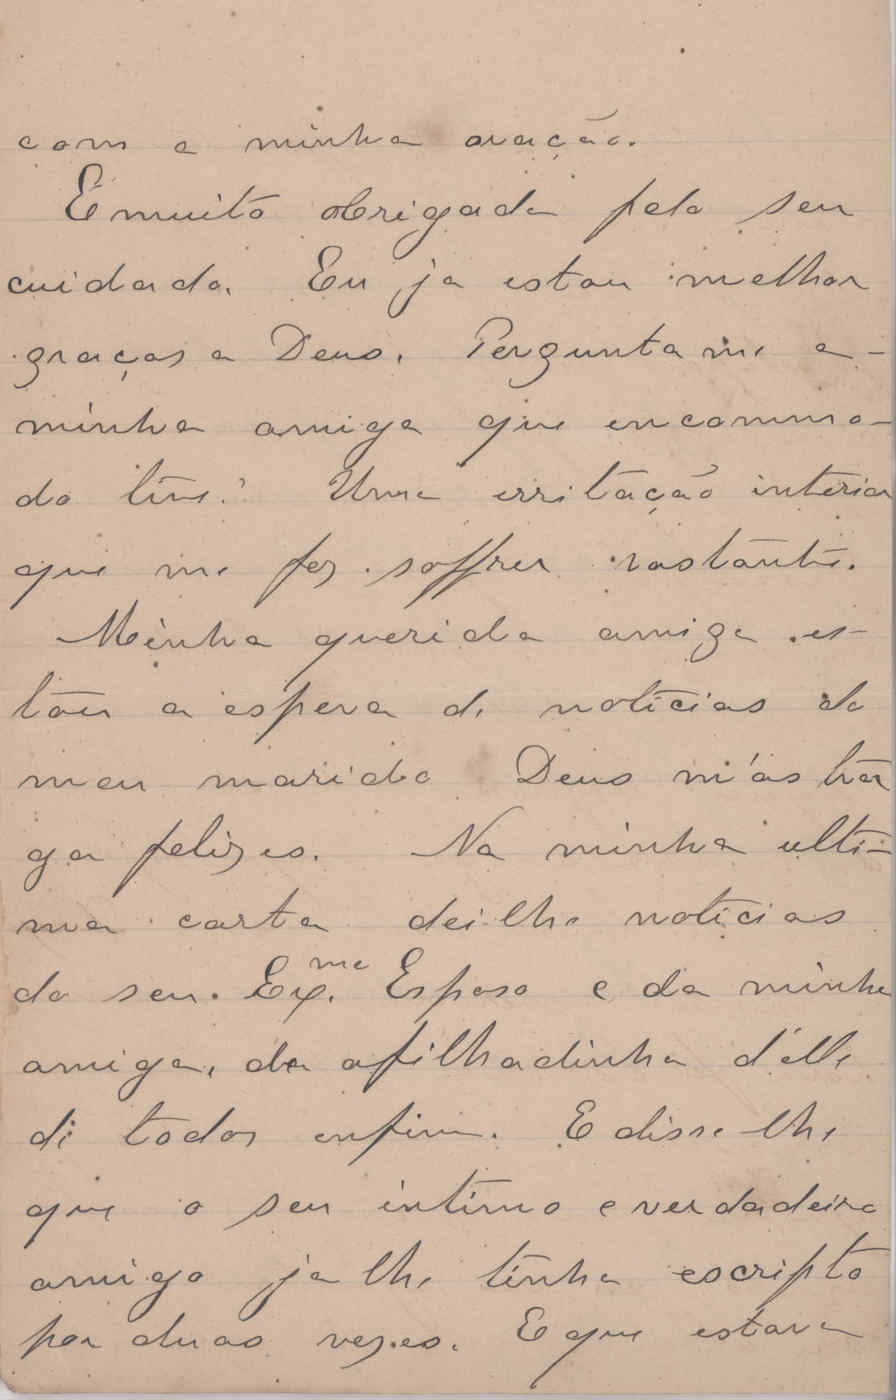 com a minha oração.
E muito obrigada pelo seu
cuidado. Eu ja estou melhor
graças a Deus. Pergunta me a-
minha amiga que encommo-
do tive? Uma irritação interior
que me fez soffrer vastante.
Minha querida amiga es-
tou a espera de noticias do
meu marido Deus m'ás tra
ga felizes. Na minha ulti-
ma carta dei lhe noticias
do seu Ex.mo Esposo e da minha
amiga, da afilhadinha d'elle
de todos enfim. E disse lhe
que o seu intimo e verdadeiro
amigo ja lhe tinha escripto
por duas vezes. E que estava